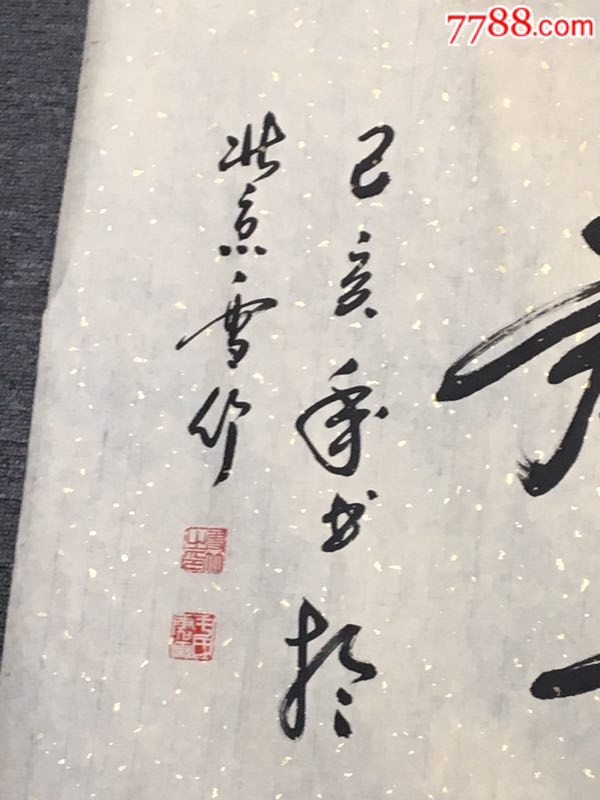 7788.com
己亥年书於
北京雪竹